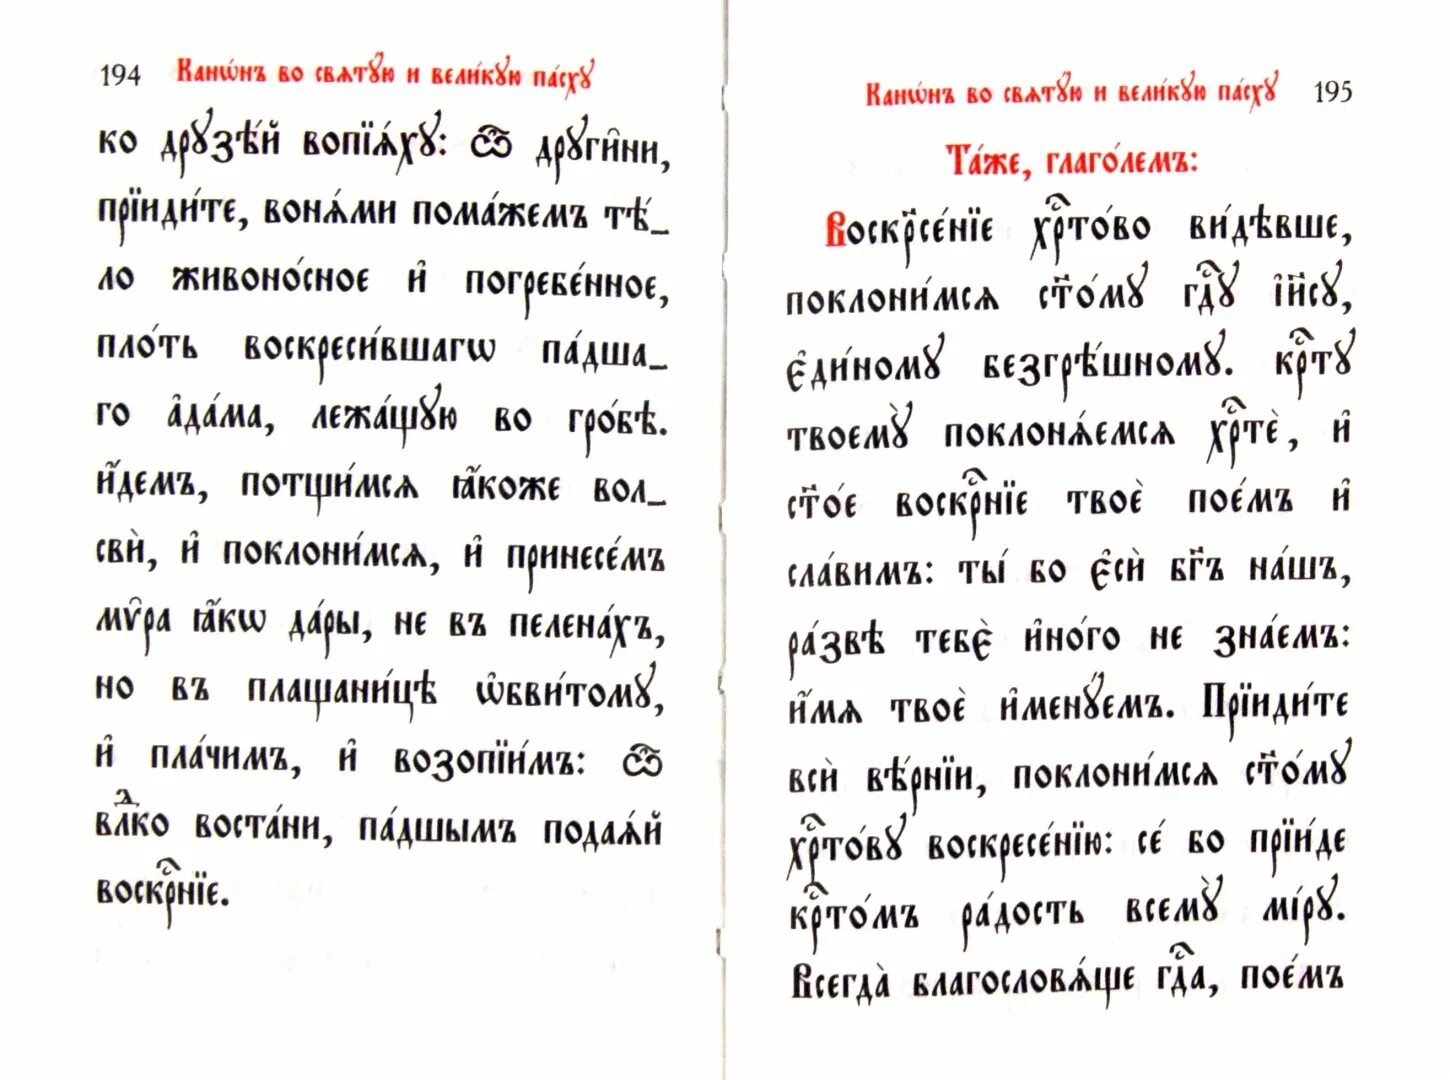 194 Канѡ́нъ во свѧтꙋ́ю и вели́кꙋю па́схꙋ
ко дрꙋзѣ́й вопїѧ́хꙋ: ѽ дрꙋги̑ни,
прїиди́те, вонѧ́ми пома́жемъ тѣ́_
ло живоно́сное и҆ погребе́нное,
пло́ть воскреси́вшагѡ па́дша_
го а҆да́ма, лежа́щꙋю во гро́бѣ.
и҆́демъ, потщи́мсѧ ꙗ҆́коже вол_
сви̑, и҆ поклони́мсѧ, и҆ принесе́мъ
мѵ̑ра ꙗ҆́кѡ да́ры, не въ пелена́хъ,
но въ плащани́цѣ ѡ҆бви́томꙋ,
и҆ пла́чимъ, и҆ возопїи́мъ: ѽ
влⷣко воста́ни, па́дшымъ подаѧ́й
воскрⷭ҇нїе.
Канѡ́нъ во свѧтꙋ́ю и вели́кꙋю па́схꙋ 195
Та́же, глаго́лемъ:
Воскр҇се́нїе хрⷭ҇то́во ви́дѣвше,
поклони́мсѧ ст҃о́мꙋ гдⷭ҇ꙋ і҆и҃сꙋ,
є҆ди́номꙋ безгрѣ́шномꙋ. крⷭ҇тꙋ̀
твоемꙋ̀ поклонѧ́емсѧ хрⷭ҇тѐ, и҆
ст҃о́е воскрⷭ҇нїе твоѐ пое́мъ и҆
сла́вимъ: ты́ бо є҆сѝ бг҃ъ на́шъ,
ра́звѣ тебє̀ и҆но́го не зна́емъ:
и҆́мѧ твоѐ и҆менꙋ́емъ. Прїиди́те
всѝ вѣ́рнїи, поклони́мсѧ ст҃о́мꙋ
хрⷭ҇то́вꙋ воскресе́нїю: се́ бо прїи́де
крⷭ҇то́мъ ра́дость всемꙋ̀ мі́рꙋ.
Всегда̀ благословѧ́ще гдⷭ҇а, пое́мъ